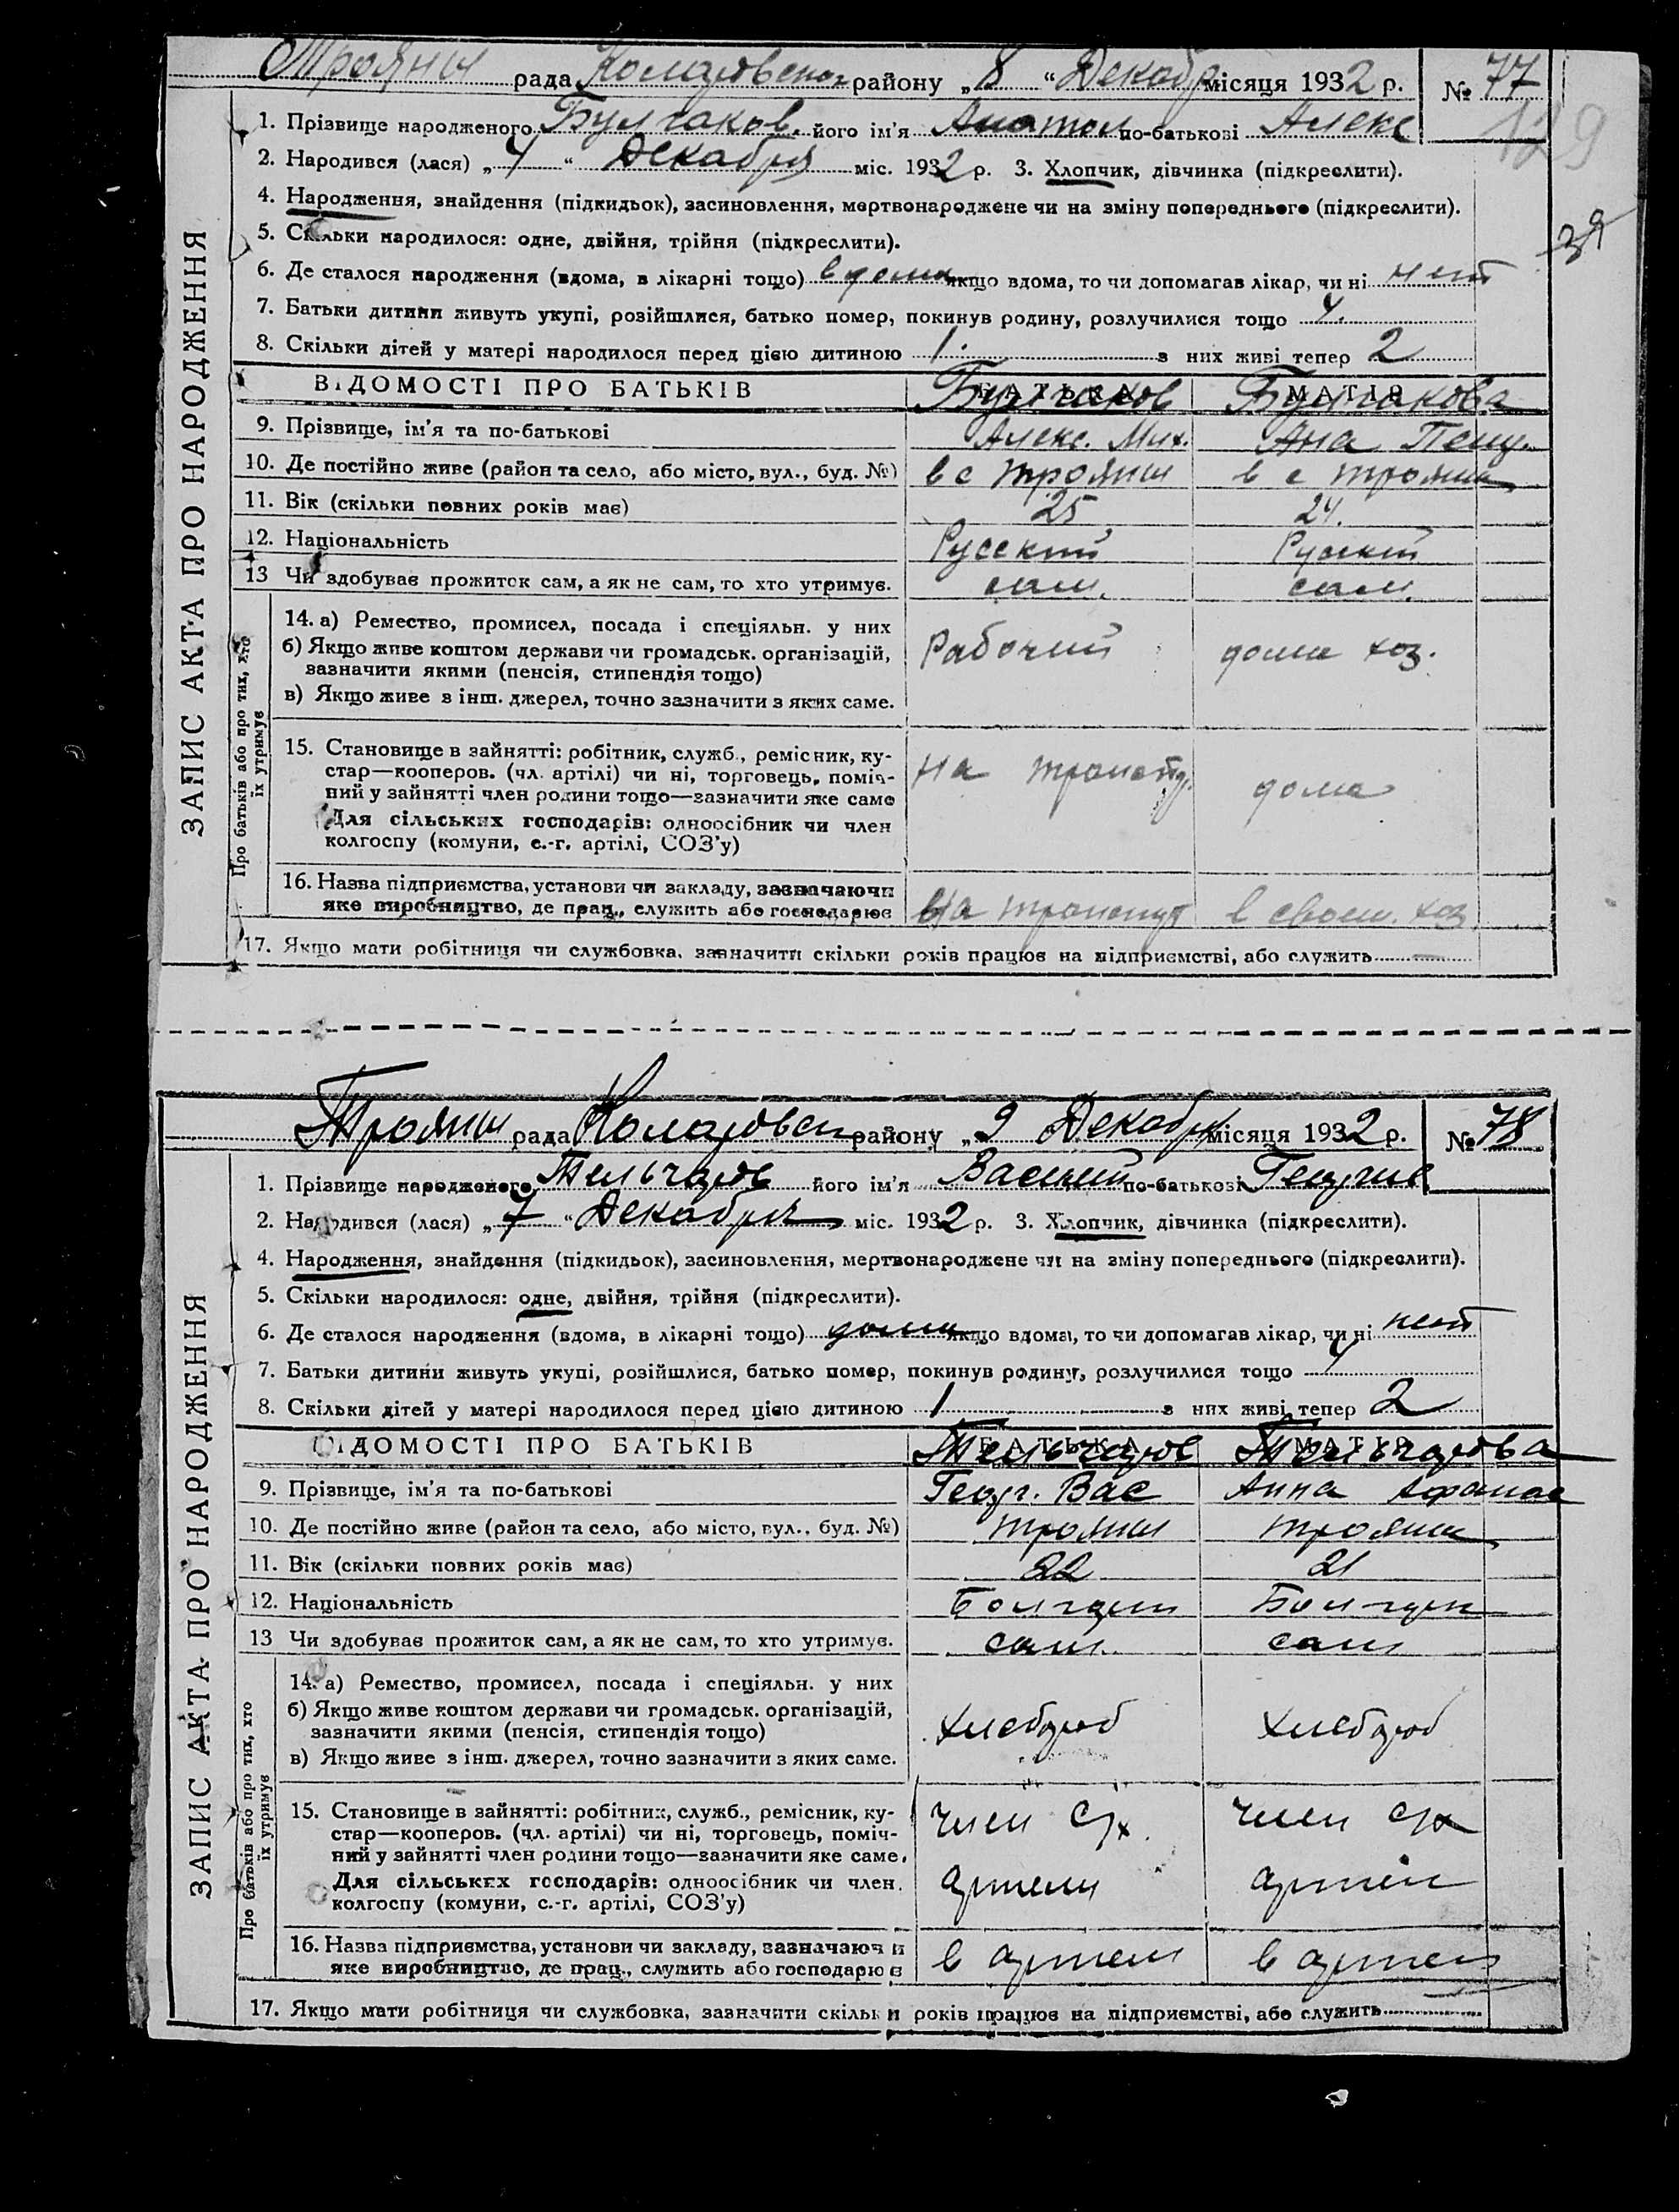 Трояны рада Коларовского району „8“ Декабр місяця 1932 р. № 77
129
1. Прізвище народженого Булгаков. його ім'я Анатол по-батькові Алекс
2. Народився (лася) „4“ Декабря міс. 1932 р. 3. Хлопчик, дівчинка (підкреслити).
4. Народження, знайдення (підкидьок), засиновлення, мертвонароджене чи на зміну попереднього (підкреслити).
39
5. Скільки народилося: одне, двійня, трійня (підкреслити).
6. Де сталося народження (вдома, в лікарні тощо) в дома якщо вдома, то чи допомагав лікар, чи ні нет
7. Батьки дитини живуть укупі, розійшлися, батько помер, покинув родину, розлучилися тощо у.
8. Скільки дітей у матері народилося перед цією дитиною 1. з них живі тепер 2
ЗАПИС АКТА ПРО НАРОДЖЕННЯ
ВІДОМОСТІ ПРО БАТЬКІВ БАТЬКА МАТІР
Булгаков Булгакова
9. Прізвище, ім'я та по-батькові Алекс. Мих. Ана
10. Де постійно живе (район та село, або місто, вул., буд. №) в с Трояни в с Трояни
11. Вік (скільки повних років має) 25 24.
12. Національність Русский Руский
13 Чи здобуває прожиток сам, а як не сам, то хто утримує. сам. сам.
Про батьків або про тих, хто їх утримує
14. а) Ремество, промисел, посада і спеціяльн. у них
б) Якщо живе коштом держави чи громадськ. організацій, зазначити якими (пенсія, стипендія тощо) Рабочий дома хоз.
в) Якщо живе з інш. джерел, точно зазначити з яких саме.
15. Становище в зайнятті: робітник, служб., ремісник, ку-
стар—кооперов. (чл. артілі) чи ні, торговець, поміч- на транспор. дома
ний у зайнятті член родини тощо—зазначити яке саме
Для сільських господарів: одноосібник чи член
колгоспу (комуни, с.-г. артілі, СОЗ'у)
16. Назва підприємства, установи чи закладу, зазначаючи
яке виробництво, де прац., служить або господарює на транспорт в своем. хоз
17. Якщо мати робітниця чи службовка, зазначити скільки років працює на підприємстві, або служить —
Трояны рада Коларовск району „9 Декабря місяця 1932 р. № 78
1. Прізвище народженого Тельчаров його ім'я Василий по-батькові Георгиев
2. Народився (лася) „7“ Декабря міс. 1932 р. 3. Хлопчик, дівчинка (підкреслити).
4. Народження, знайдення (підкидьок), засиновлення, мертвонароджене чи на зміну попереднього (підкреслити).
5. Скільки народилося: одне, двійня, трійня (підкреслити).
6. Де сталося народження (вдома, в лікарні тощо) дома якщо вдома, то чи допомагав лікар, чи ні нет
7. Батьки дитини живуть укупі, розійшлися, батько помер, покинув родину, розлучилися тощо у
8. Скільки дітей у матері народилося перед цією дитиною 1 з них живі тепер 2
ЗАПИС АКТА ПРО НАРОДЖЕННЯ
ВІДОМОСТІ ПРО БАТЬКІВ БАТЬКА МАТІР
Тельчаров Тельчарова
9. Прізвище, ім'я та по-батькові Георг. Вас Анна Афанас
10. Де постійно живе (район та село, або місто, вул., буд. №) Трояни Трояни
11. Вік (скільки повних років має) 22 21
12. Національність Болгарин Болгарин
13 Чи здобуває прожиток сам, а як не сам, то хто утримує. сам. сам
Про батьків або про тих, хто їх утримує
14. а) Ремество, промисел, посада і спеціяльн. у них
б) Якщо живе коштом держави чи громадськ. організацій,
зазначити якими (пенсія, стипендія тощо) хлебороб хлебороб
в) Якщо живе з інш. джерел, точно зазначити з яких саме.
15. Становище в зайнятті: робітник, служб., ремісник, ку- член с/х член с/х
стар—кооперов. (чл. артілі) чи ні, торговець, поміч-
ний у зайнятті член родини тощо—зазначити яке саме.
Для сільських господарів: одноосібник чи член. артели артели
колгоспу (комуни, с.-г. артілі, СОЗ'у)
16. Назва підприємства, установи чи закладу, зазначаючи
яке виробництво, де прац., служить або господарює в артели в артели
17. Якщо мати робітниця чи службовка, зазначити скільки років працює на підприємстві, або служить